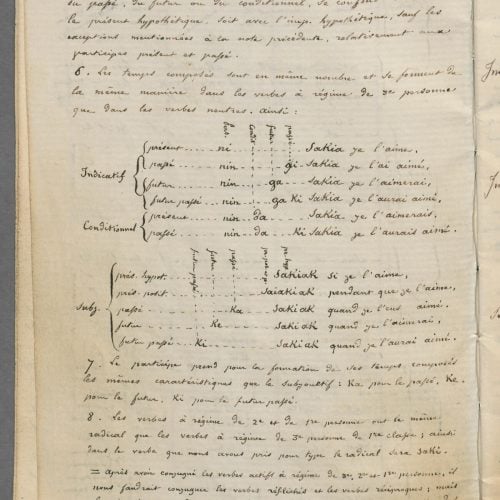 du passé, du futur ou du conditionnel, se confond
le présent hypothétique, soit avec l'imp. hypothétique, sauf les
exceptions mentionnées à la note précédente, relativement aux
participes présent et passé.
6. Les temps composés sont en même nombre et se forment de
la même manière dans les verbes à régime de 3e personne
que dans les verbes neutres. Ainsi :
ind. condit. futur passé
Indicatif
présent ... ni ... Sakia je l'aime,
passé ... nin ... gi Sakia je l'ai aimé,
futur ... nin ... ga ... Sakia je l'aimerai,
futur passé ... nin ... ga Ki Sakia je l'aurai aimé,
Conditionnel
présent ... nin da ... Sakia je l'aimerais,
passé ... nin da ... Ki Sakia je l'aurais aimé.
futur passé futur passé
Subj.
prés. hypot. ... Sakiak si je l'aime,
prés. posit. ... Saiakiak pendant que je l'aime,
passé ... Ka ... Sakiak quand je l'eus aimé.
futur ... Ke ... Sakiak quand je l'aimerai,
futur passé ... Ki ... Sakiak quand je l'aurai aimé.
7. Le participe prend pour la formation de ses temps composés
les mêmes caractéristiques que le subjonctif : Ka pour le passé, Ke
pour le futur, Ki pour le futur passé.
8. Les verbes à régime de 2e et de 1re personne ont le même
radical que les verbes à régime de 3e personne de 1re classe ; ainsi
dans le verbe que nous avons pris pour type le radical sera Saki.
= après avoir conjugué les verbes actifs à régime de 3e, 2e et 1re personne, il
nous faudrait conjuguer les verbes réfléchis et les verbes réciproques ; mais